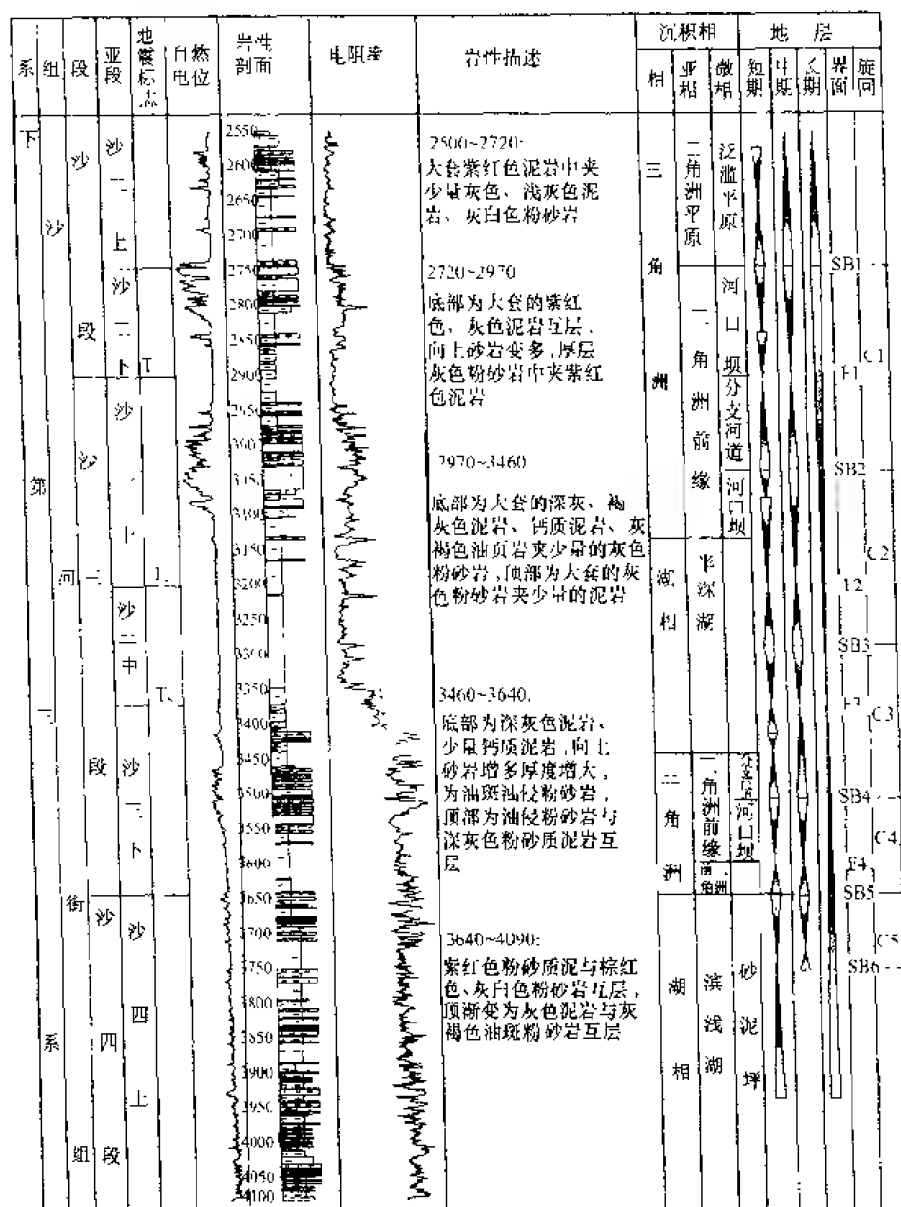 系 组 段 亚段 地震标志 自然电位 岩性剖面 电阻率 岩性描述 沉积相 地 层
相 亚相 微相 短期 中期 长期 界面 旋回
下
第
三
系
沙
河
街
组
沙
二
段
沙
三
段
沙
四
段
沙
二
上
沙
二
下
沙
三
上
沙
三
中
沙
三
下
沙
四
上
2550
2600
2650
2700
2750
2800
2850
2900
2950
3000
3050
3100
3150
3200
3250
3300
3350
3400
3450
3500
3550
3600
3650
3700
3750
3800
3850
3900
3950
4000
4050
4100
2500~2720:
大套紫红色泥岩中夹
少量灰色、浅灰色泥
岩、灰白色粉砂岩
2720~2970
底部为大套的紫红
色、灰色泥岩互层,
向上砂岩变多,厚层
灰色粉砂岩中夹紫红
色泥岩
2970~3460
底部为大套的深灰、褐
灰色泥岩、钙质泥岩、灰
褐色油页岩夹少量的灰色
粉砂岩,顶部为大套的灰
色粉砂岩夹少量的泥岩
3460~3640:
底部为深灰色泥岩、
少量钙质泥岩,向上
砂岩增多厚度增大,
为油斑油侵粉砂岩,
顶部为油侵粉砂岩与
深灰色粉砂质泥岩互
层
3640~4090:
紫红色粉砂质泥与棕红
色、灰白色粉砂岩互层,
顶渐变为灰色泥岩与灰
褐色油斑粉砂岩互层
三
角
洲
湖
相
三
角
洲
湖
相
三角洲平原
三角洲前缘
半深湖
三角洲前缘
滨浅湖
泛滥平原
河口坝
分支河道
河口坝
河口坝
砂泥坪
SB1
C1
F1
SB2
C2
F2
SB3
F3
C3
SB4
C4
F4
SB5
C5
SB6